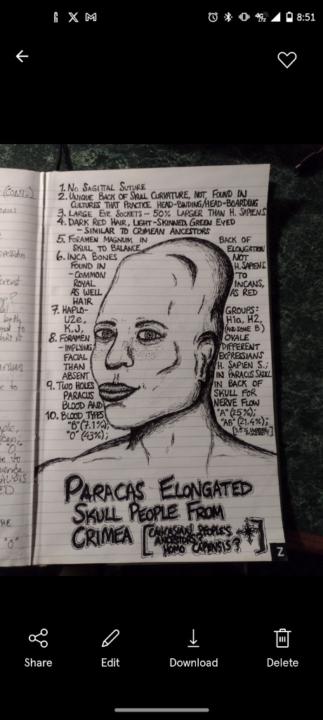 8:51
1. No Sagittal Suture
2. Unique Back of Skull Curvature, Not Found in
Cultures That Practice Head-Binding/Head-Boarding
3. Large Eye Sockets - 50% Larger Than H. Sapiens
4. Dark Red Hair, Light-Skinned Green Eyed
- Similar to Crimean Ancestors
5. Foramen Magnum in Back of
Skull to Balance Elongation
6. Inca Bones Not
Found in H. Sapiens
- Common to
Royal Incans,
As Well As Red
Hair
7. Haplo- Groups:
U2e, H1a, H2,
K, J, (and some B)
8. Foramen Ovale
- Implying Different
Facial Expressions
Than H. Sapien S.;
Absent in Paracas Skull
9. Two Holes in Back of
Paracus Skull for
Blood and Nerve Flow
10. Blood Types "A" (25%);
"B" (7.1%); "AB" (21.4%);
"O" (43%);
Paracas Elongated
Skull People From
Crimea [Caucasian People's
Ancestors?
Homo Capensis?]
Z
Share Edit Download Delete